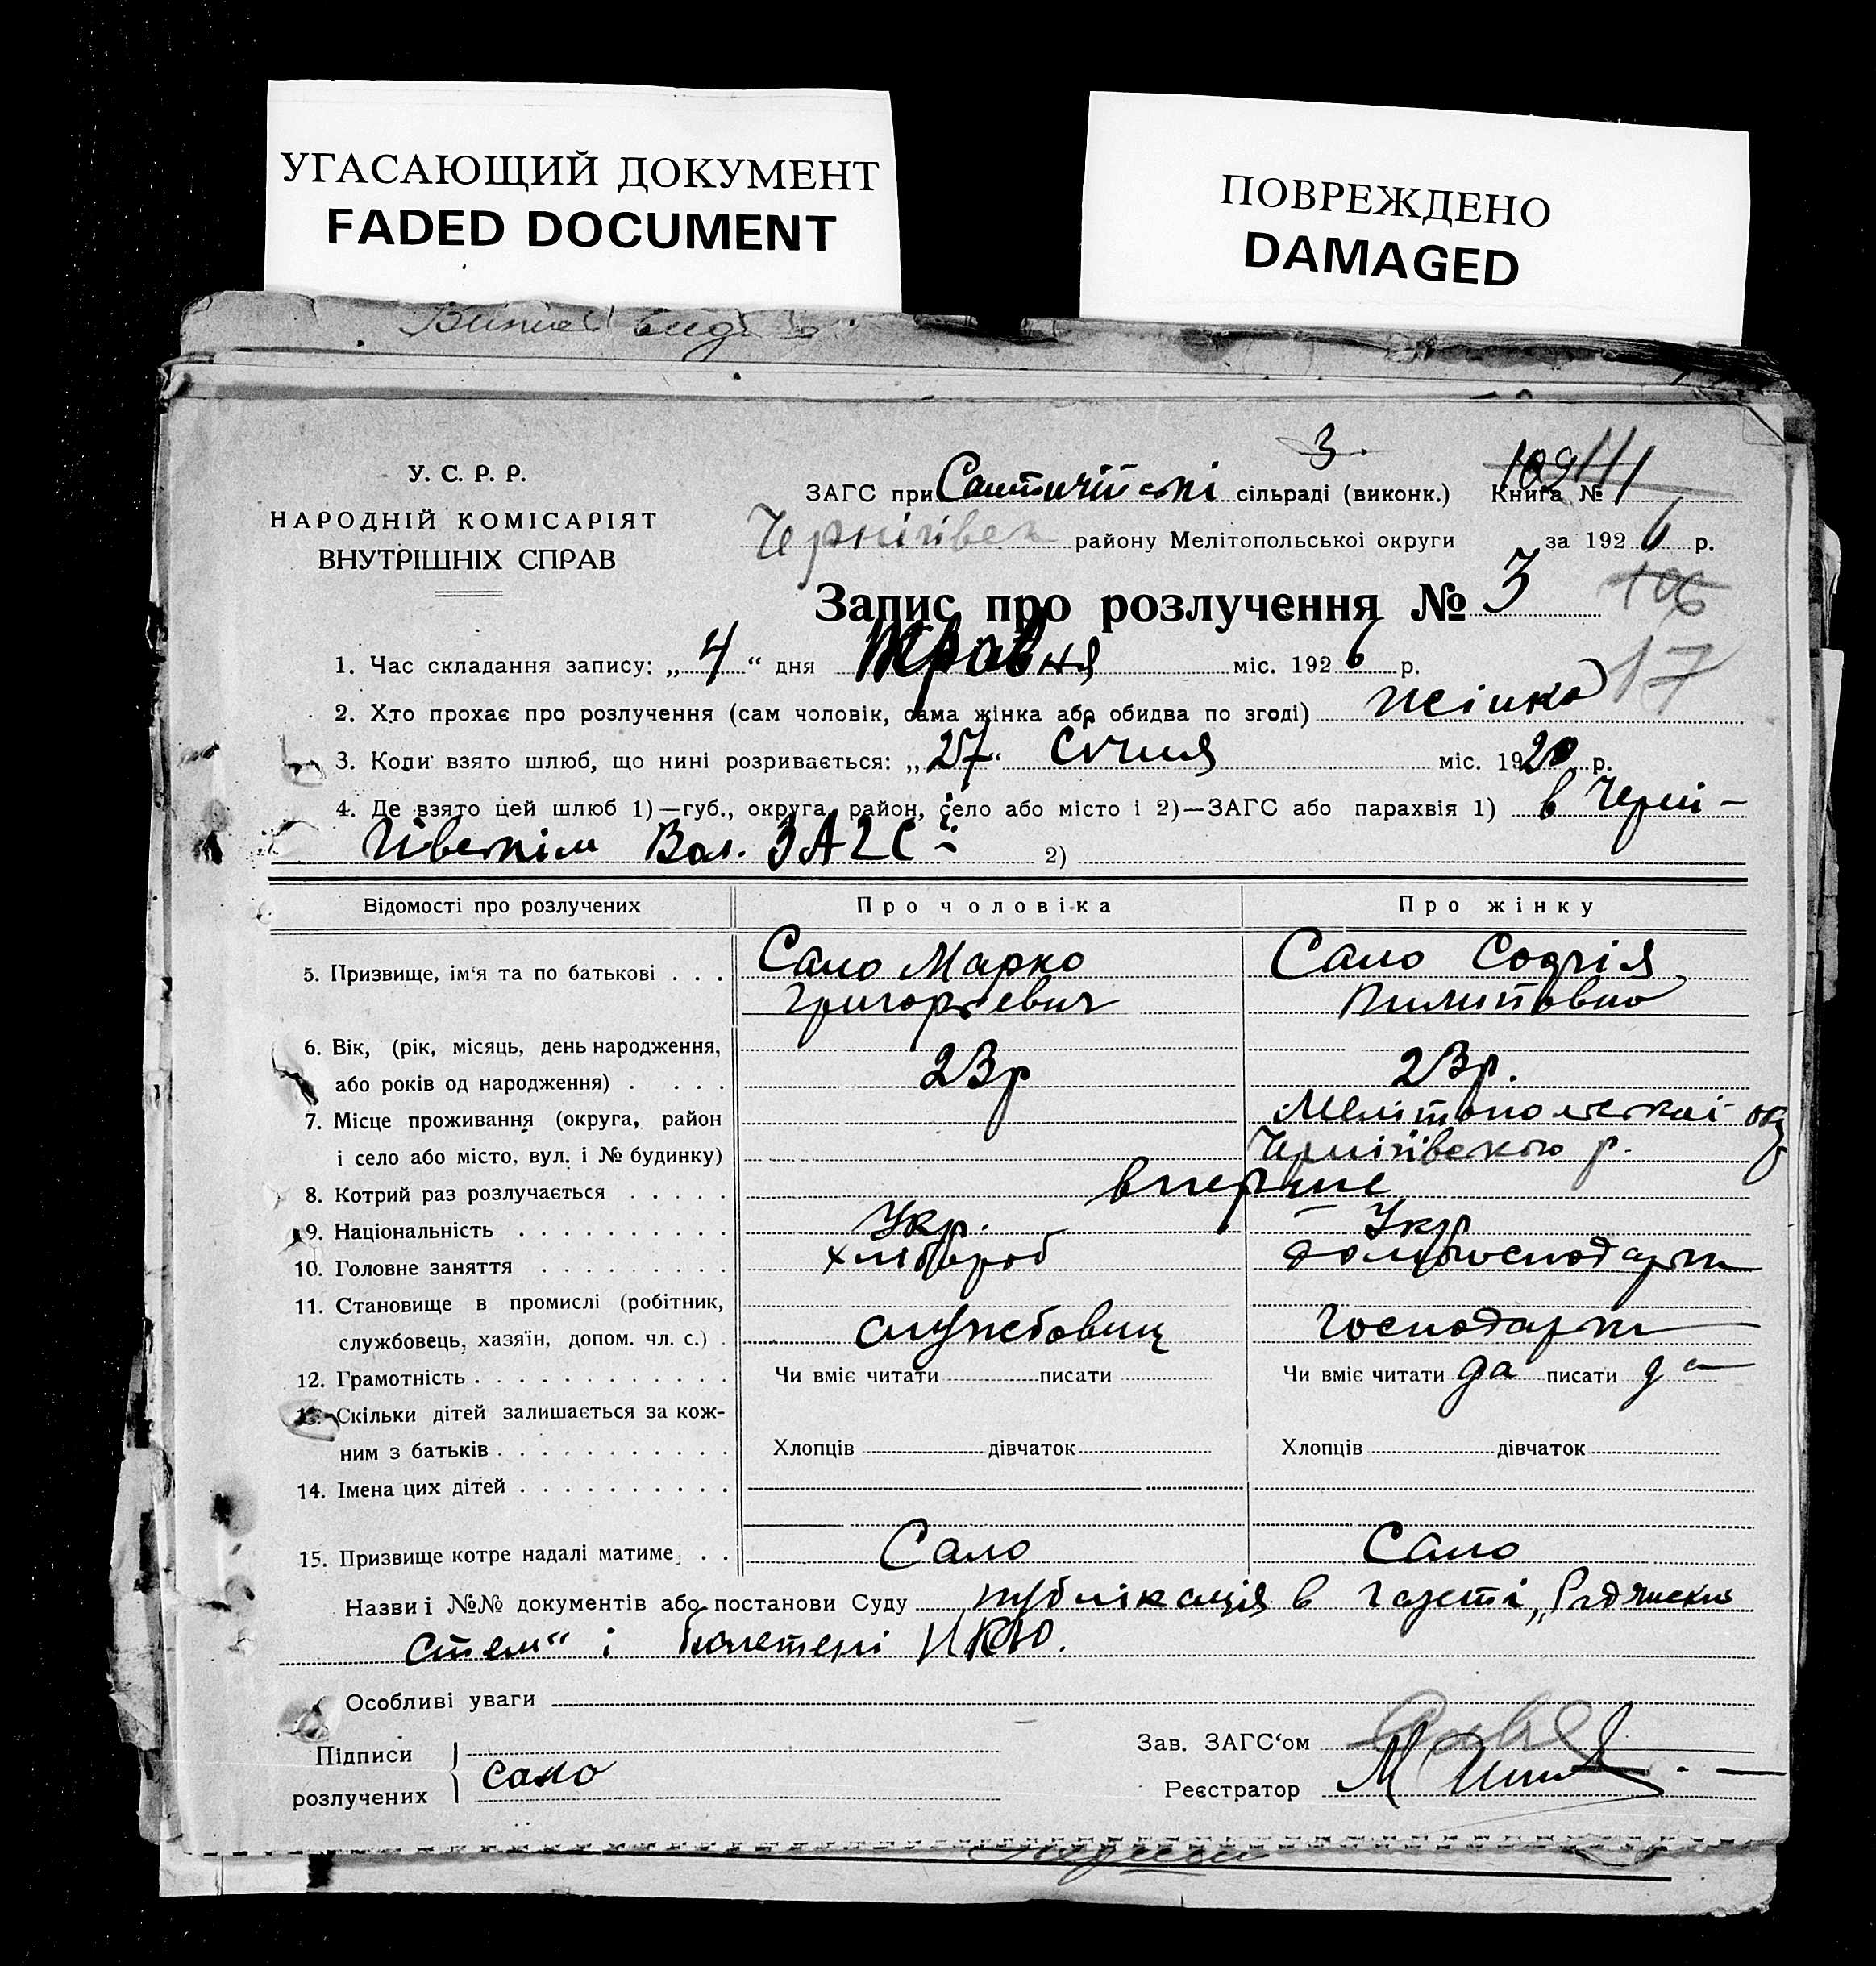 УГАСАЮЩИЙ ДОКУМЕНТ
FADED DOCUMENT
ПОВРЕЖДЕНО
DAMAGED
3.
У. С. Р. Р.
НАРОДНІЙ КОМІСАРІЯТ
ВНУТРІШНІХ СПРАВ
ЗАГС при сільраді (виконк.) Книга №
Чернігівск району Мелітопольської округи за 1926 р.
Запис про розлучення № 3
17
1. Час складання запису: „4“ дня Травня міс. 1926 р.
2. Хто прохає про розлучення (сам чоловік, сама жінка або обидва по згоді) жінка
3. Коли взято шлюб, що нині розривається: „27“ Січня міс. 1920 р.
4. Де взято цей шлюб 1)—губ., округа, район, село або місто і 2)—ЗАГС або парахвія 1) в Черні-
гівскім Вол. ЗАГСі 2)
Відомості про розлучених Про чоловіка Про жінку
5. Призвище, ім‘я та по батькові . . . Сало Марко Сало Софія
Григорьевич Пилиповна
6. Вік, (рік, місяць, день народження,
або років од народження) . . . . 23р 23р.
7. Місце проживання (округа, район Мелітопольскаі окр
і село або місто, вул. і № будинку) Чернігівського р.
8. Котрий раз розлучається . . . . . вперше
9. Національність . . . . . . . . . . Укр. Укр
10. Головне заняття . . . . . . . . . хлібороб домогосподарка
11. Становище в промислі (робітник,
службовець, хазяїн, допом. чл. с.) . службовиц господарка
12. Грамотність . . . . . . . . . . . . Чи вміє читати писати Чи вміє читати да писати да
13. Скільки дітей залишається за кож-
ним з батьків . . . . . . . . . . . Хлопців дівчаток Хлопців дівчаток
14. Імена цих дітей . . . . . . . . . .
15. Призвище котре надалі матиме . . Сало Сало
Назви і №№ документів або постанови Суду публікація в газеті „Радянский
Степ“ і бюлетені НКЮ.
Особливі уваги
Підписи
розлучених
сало
Зав. ЗАГС‘ом
Реєстратор